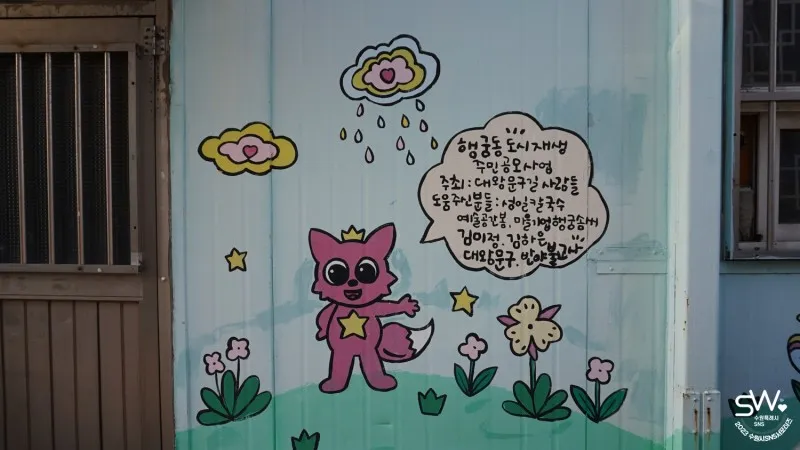 행궁동 도시재생
주민공모사업
주최 : 대왕문구길 사람들
도움주신분들 : 성일칼국수
예술공간봄, 마을기업행궁솜씨
김미정, 김하은
대왕문구, 반야불교사
SW
수원특례시
SNS